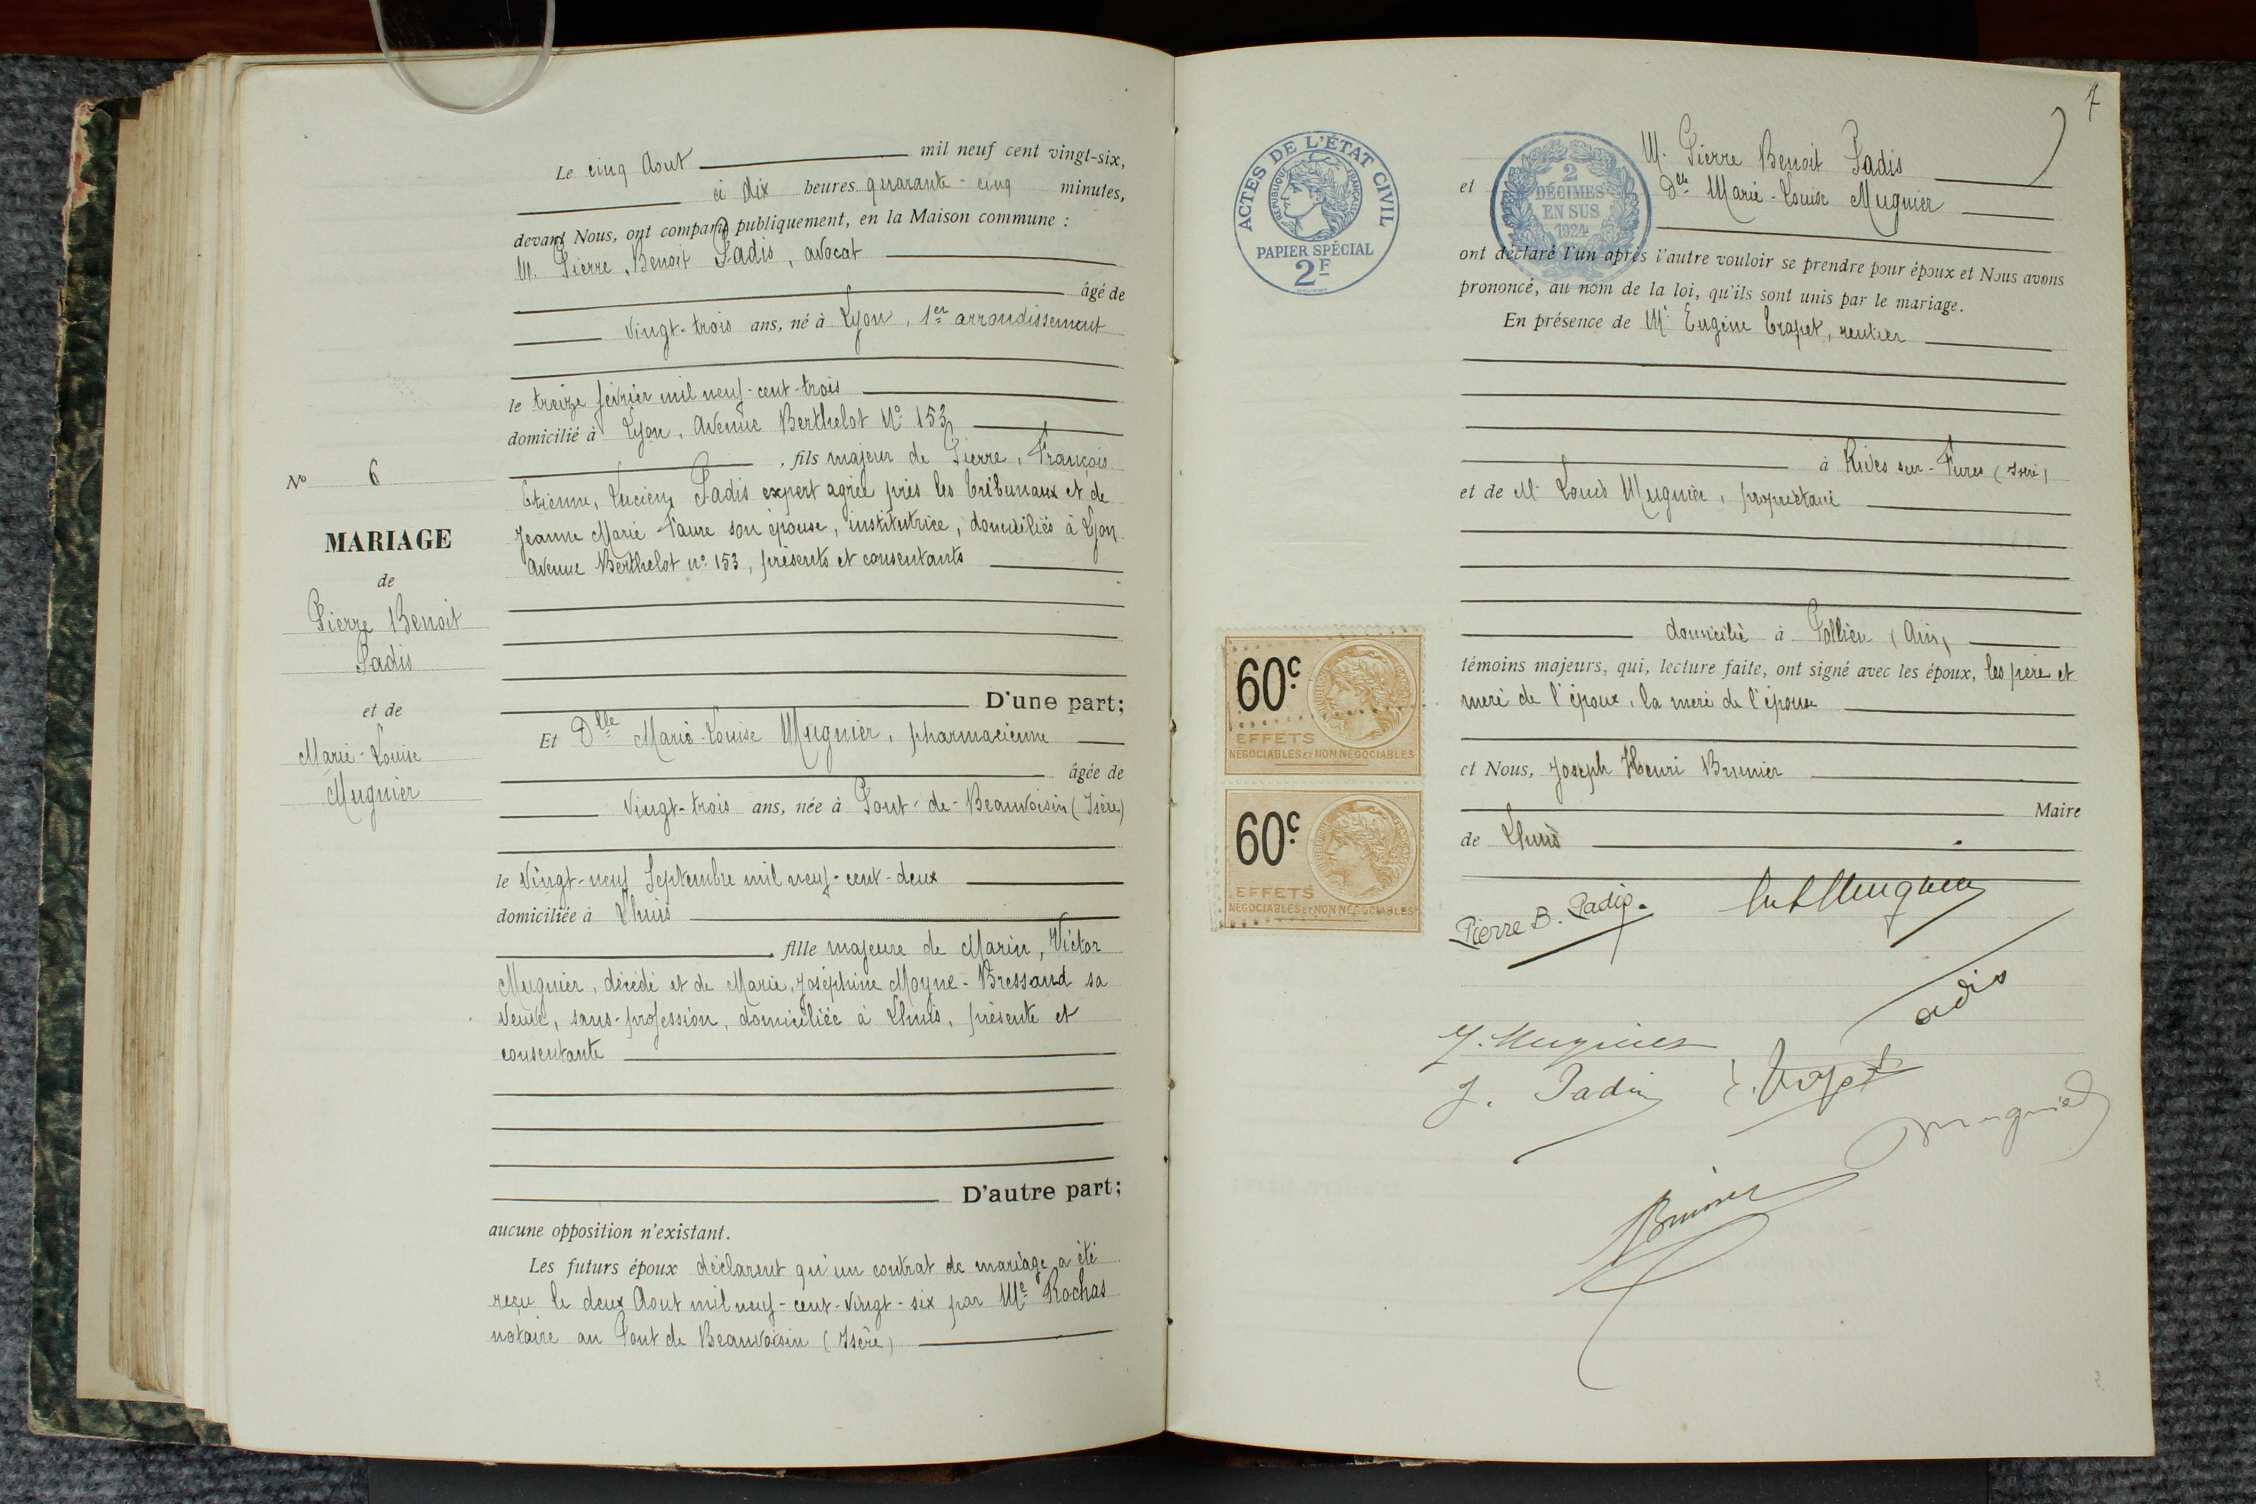 Le cinq Aout mil neuf cent vingt-six,
à dix heures quarante-cinq minutes,
devant Nous, ont comparu publiquement, en la Maison commune :
M. Pierre, Benoit Padis, avocat
âgé de
vingt-trois ans, né à Lyon, 1er arrondissement
le treize février mil neuf-cent-trois
domicilié à Lyon, Avenue Berthelot N° 153
, fils majeur de Pierre, François
Etienne, Lucien, Padis expert agréé près les tribunaux et de
Jeanne Marie Faure son épouse, institutrice, domiciliés à Lyon
Avenue Berthelot n° 153, présents et consentants
D'une part;
Et Dlle Marie-Louise Mugnier, pharmacienne
âgée de
vingt-trois ans, née à Pont-de-Beauvoisin (Isère)
le vingt-neuf Septembre mil neuf-cent-deux
domiciliée à Lhuis
, fille majeure de Marin, Victor
Mugnier, décédé et de Marie, Joséphine Moyne-Bressand sa
veuve, sans-profession, domiciliée à Lhuis, présente et
consentante
D'autre part;
aucune opposition n'existant.
Les futurs époux déclarent qu'un contrat de mariage a été
reçu le deux Aout mil neuf-cent-vingt-six par Me Rochas
notaire au Pont de Beauvoisin (Isère)
N° 6
MARIAGE
de
Pierre Benoit
Padis
et de
Marie-Louise
Mugnier
7
ACTES DE L'ÉTAT CIVIL
RÉPUBLIQUE FRANÇAISE
PAPIER SPÉCIAL
2F
2
DÉCIMES
EN SUS
1924
M. Pierre Benoit Padis
et Dlle Marie-Louise Mugnier
ont déclaré l'un après l'autre vouloir se prendre pour époux et Nous avons
prononcé, au nom de la loi, qu'ils sont unis par le mariage.
En présence de Mr Eugène Trapet, rentier
à Rives sur-Fures (Isère)
et de Mr Louis Mugnier, propriétaire
domicilié à Pollieu (Ain)
témoins majeurs, qui, lecture faite, ont signé avec les époux, les père et
mère de l'époux, la mère de l'épouse
et Nous, Joseph Henri Brunier
Maire
de Lhuis
60c
EFFETS
NÉGOCIABLES ET NON NÉGOCIABLES
60c
EFFETS
NÉGOCIABLES ET NON NÉGOCIABLES
Pierre B. Padis.
Mugnier
Padis
J. Mugnier
J. Padis
E. Trapet
Mugnier
Brunier